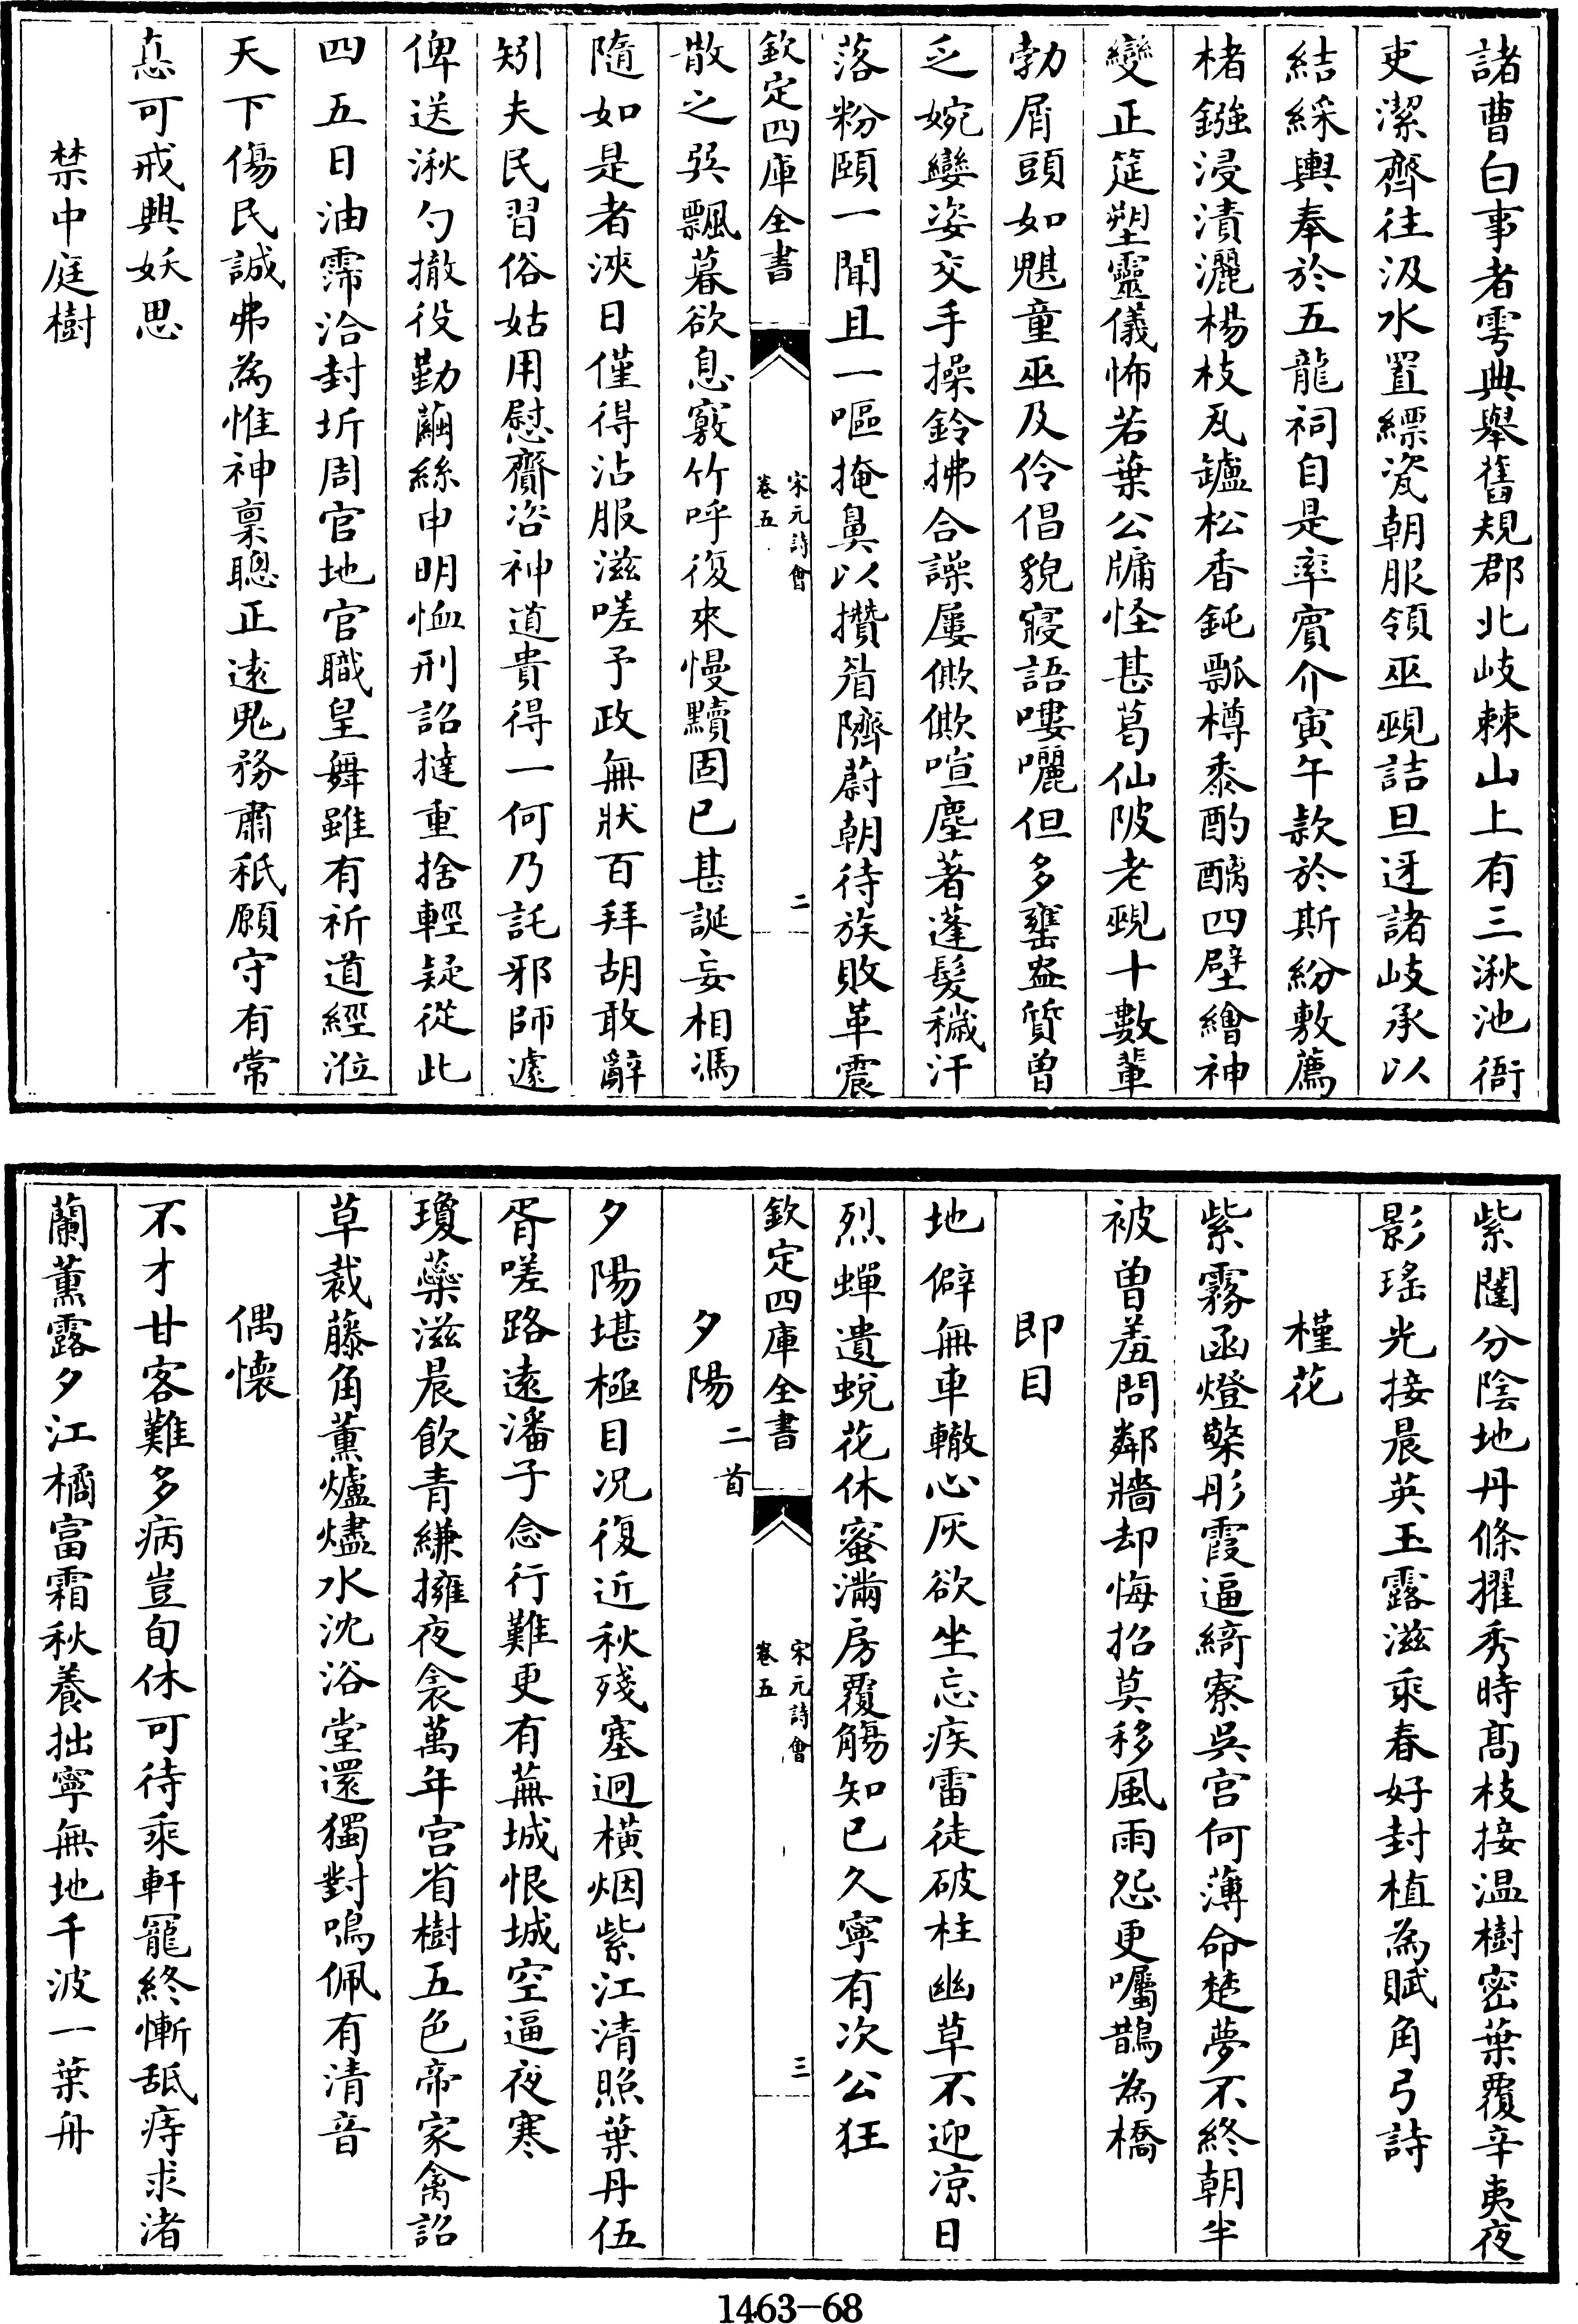 諸曹白事者雩典舉舊規郡北岐棘山上有三湫池衙
吏潔齊往汲水置縹瓷朝服領巫覡詰旦迓諸岐承以
結綵輿奉於五龍祠自是率賓介寅午款於斯紛敷薦
楮鏹浸漬灑楊枝瓦鑪松香鈍瓢樽黍酌醨四壁繪神
變正筵塑靈儀怖若葉公牗怪甚葛仙陂老覡十數輩
勃屑頭如魌童巫及伶倡貌寢語嘍囉但多壅盎質曾
乏婉孌姿交手操鈴拂合譟屢僛僛喧塵著蓬髮穢汗
落粉頤一聞且一嘔掩鼻以攢眉隮蔚朝待族敗革震
欽定四庫全書
宋元詩會
卷五
二
散之巽飄暮欲息竅竹呼復來慢黷固已甚誕妄相馮
隨如是者浹日僅得沾服滋嗟予政無狀百拜胡敢辭
矧夫民習俗姑用慰齎咨神道貴得一何乃託邪師遽
俾送湫勺撤役勤繭絲申明恤刑詔撻重捨輕疑從此
四五日油霈洽封圻周官地官職皇舞雖有祈道經涖
天下傷民誠弗為惟神稟聰正逺鬼務肅秖願守有常
悳可戒興妖思
禁中庭樹
紫闥分陰地丹條擢秀時髙枝接温樹密葉覆辛夷夜
影瑤光接晨英玉露滋乘春好封植為賦角弓詩
槿花
紫霧函燈檠彤霞逼綺寮吳宫何薄命楚夢不終朝半
被曾羞問鄰牆却悔招莫移風雨怨更囑鵲為橋
即目
地僻無車轍心灰欲坐忘疾雷徒破柱幽草不迎凉日
烈蟬遺蛻花休蜜滿房覆觴知已久寧有次公狂
欽定四庫全書
宋元詩會
卷五
三
夕陽二首
夕陽堪極目况復近秋殘塞迥横烟紫江清照葉丹伍
胥嗟路遠潘子念行難更有蕪城恨城空逼夜寒
瓊蘂滋晨飲青縑擁夜衾萬年宫省樹五色帝家禽詔
草裁藤角薰爐燼水沈浴堂還獨對鳴佩有清音
偶懷
不才甘客難多病豈旬休可待乘軒寵終慚舐痔求渚
蘭薰露夕江橘富霜秋養拙寧無地千波一葉舟
1463-68